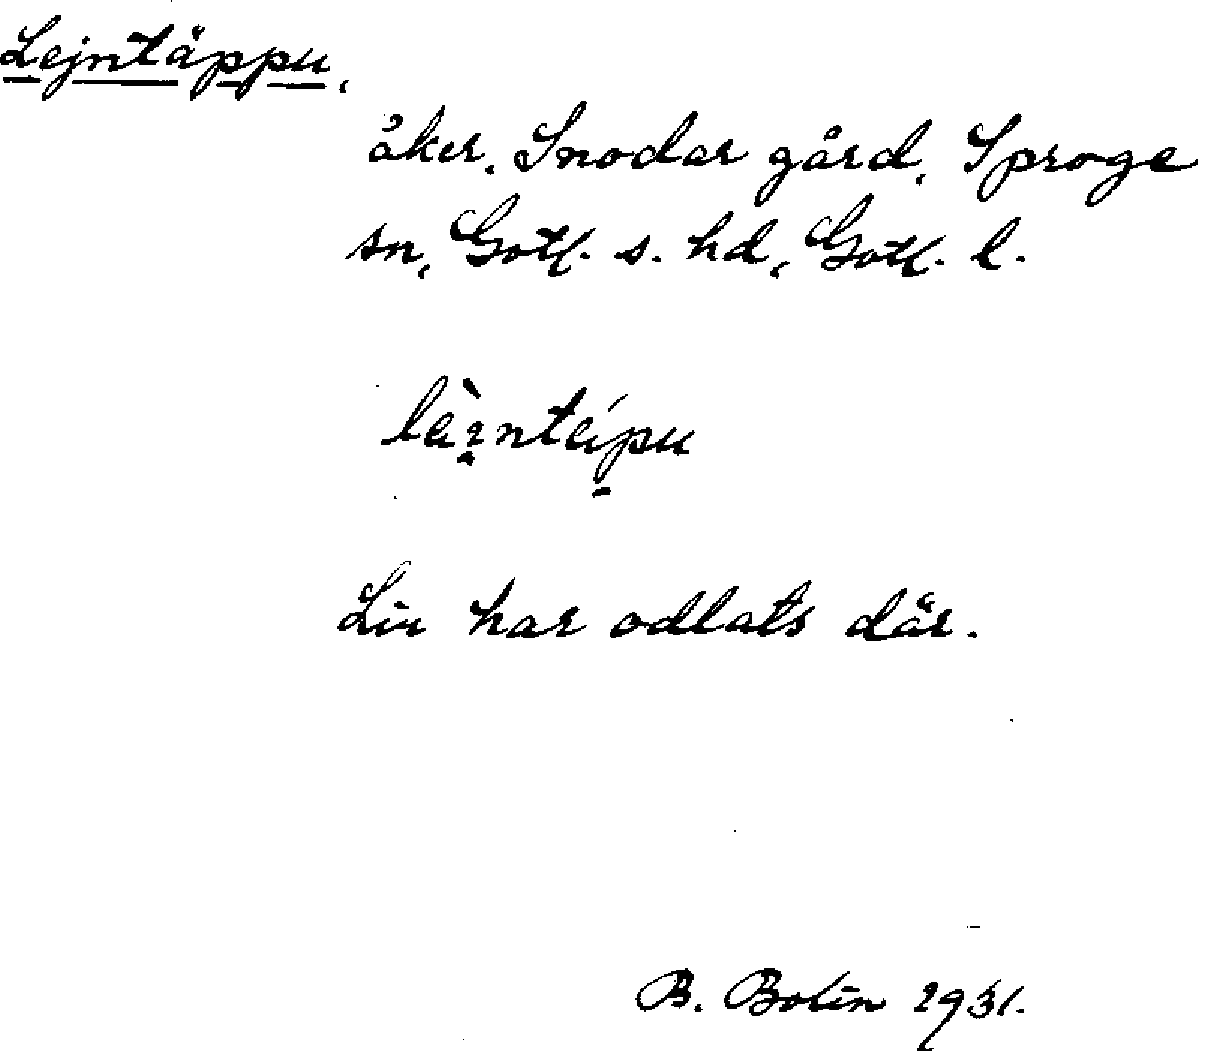 Lejntäppu,
åker, Snodar gård, Sproge
sn, Gotl. s. hd, Gotl. l.
Lin har odlats där.
B. Bolin 1931.